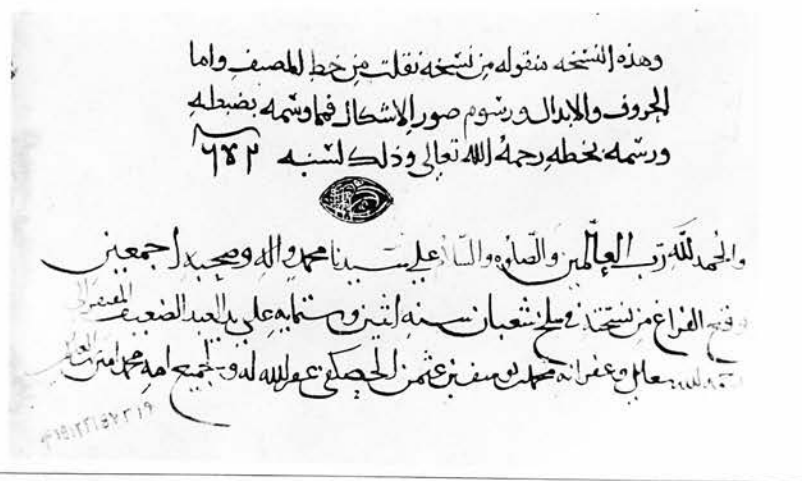 وهذه النسخه منقوله من نسخه نقلت من خط المصنف واما
الحروف والابدال ورسوم صور الاشكال فمما وسمه بضبطه
ورسمه بخطه رحمه الله تعالى وذلك لسنه
والحمد لله رب العالمين والصلوه والسلام على سيدنا محمد واله وصحبه اجمعين
وقع الفراغ من نسخته في سلخ شعبان سنه اثنين وستمايه على يد العبد الضعيف المفتقر الى
الله تعالى وغفرانه محمد بن يوسف بن عثمن الحصكفي غفر الله له ولجميع امه محمد امين